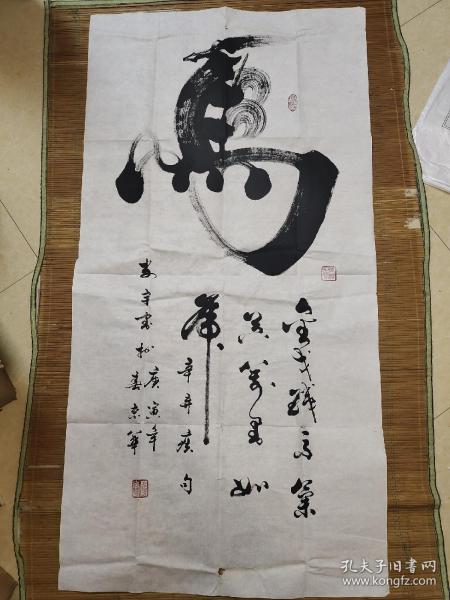 馬
金戈鐵馬氣
吞萬里如
虎
辛弃疾句
宇書於
庚寅年
春京華
孔夫子旧书网
www.kongfz.com